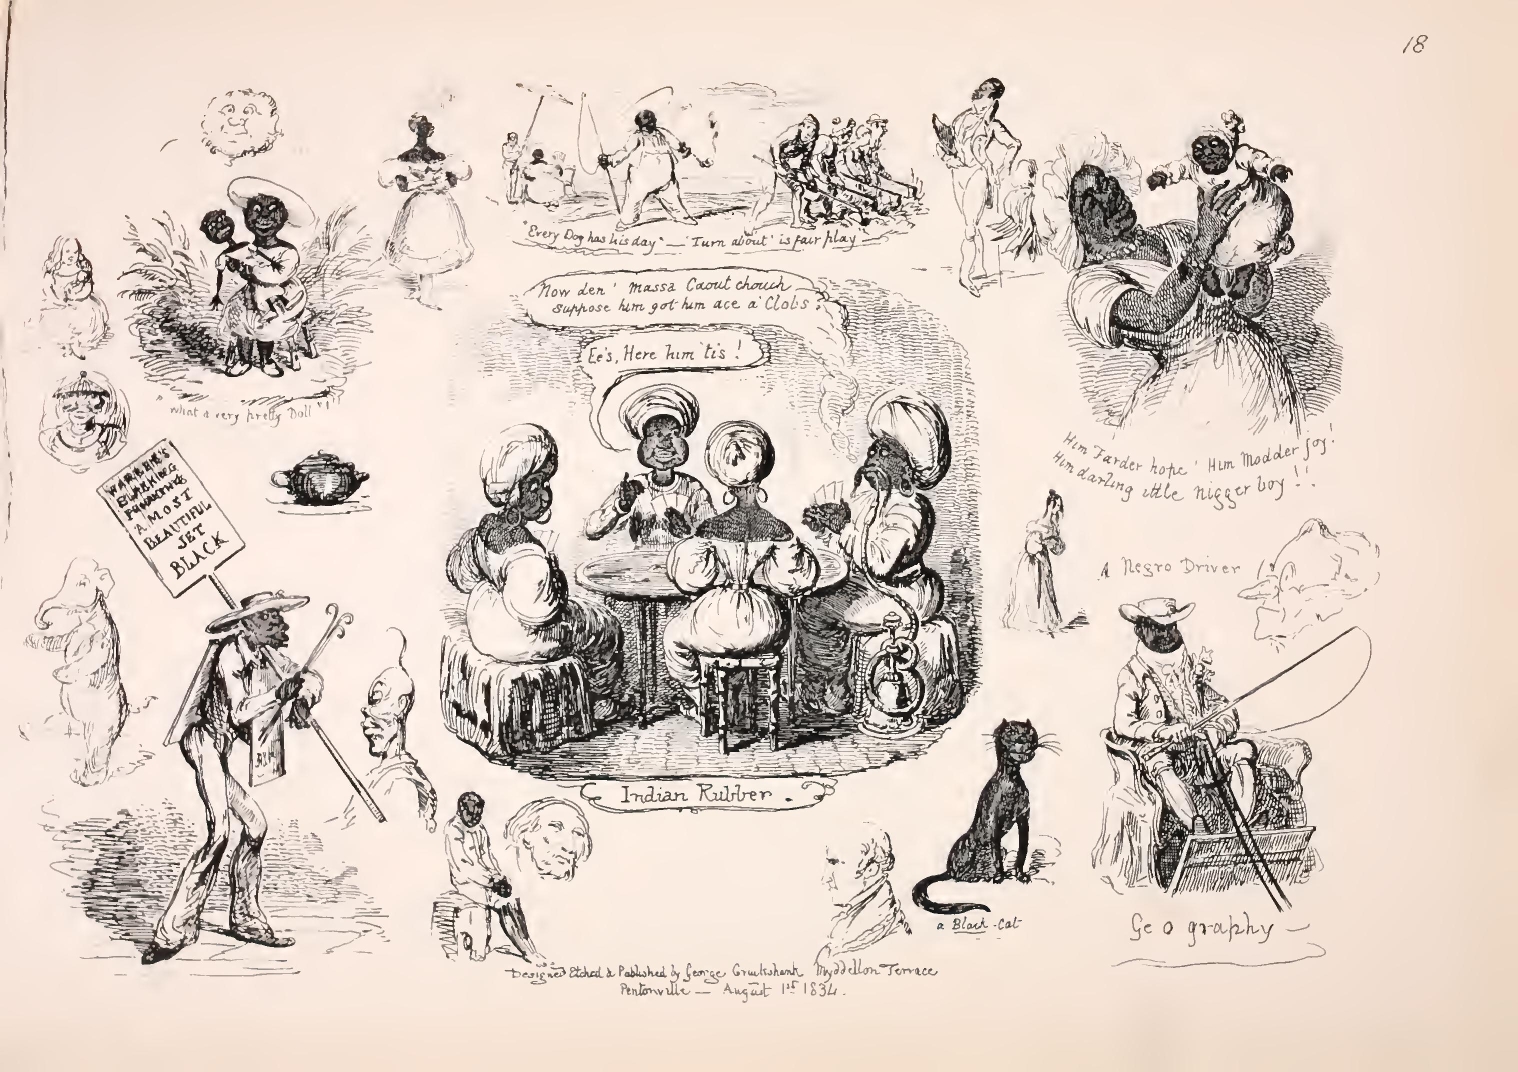 18
"Every Dog has his day" — 'Turn about' is fair play —
Now den' massa Caout chouch
suppose him got him ace a' Clobs?
Ee's, Here him 'tis !
"what a very pretty Doll"!"
Him Farder hope' Him Modder joy!
Him darling ittle nigger boy !!
WARREN'S
BLACKING
A MOST
BEAUTIFUL
JET
BLACK
A Negro Driver
Indian Rubber .
a Black-Cat
Ge o graphy —
Designed Etched & Published by George Cruikshank Myddellon Terrace
Pentonville — August 1st 1834.